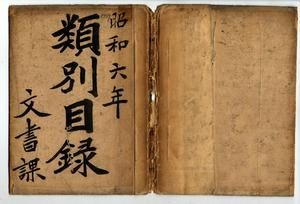 昭和六年
類別目録
文書課